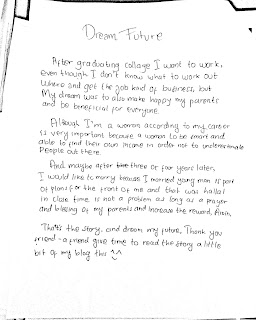 Dream Future
After graduating collage I want to work,
even though I don't know what to work out
Where and get the job kind of business, but
My dream was to also make happy my parents
and be beneficial for everyone.
Although I'm a woman according to my career
is very important because a woman to be smart and
able to find their own income in order not to underestimate
People out there.
And maybe after three or four years later,
I would like to marry because I married young man is part
of plans for the front of me and that was hallal
in close time is not a problem as long as a prayer
and blessing of my parents and increase the reward, Amin.
That's the story, and dream my future, Thank you
friend - a friend give time to read the story a little
bit of my blog this ^^